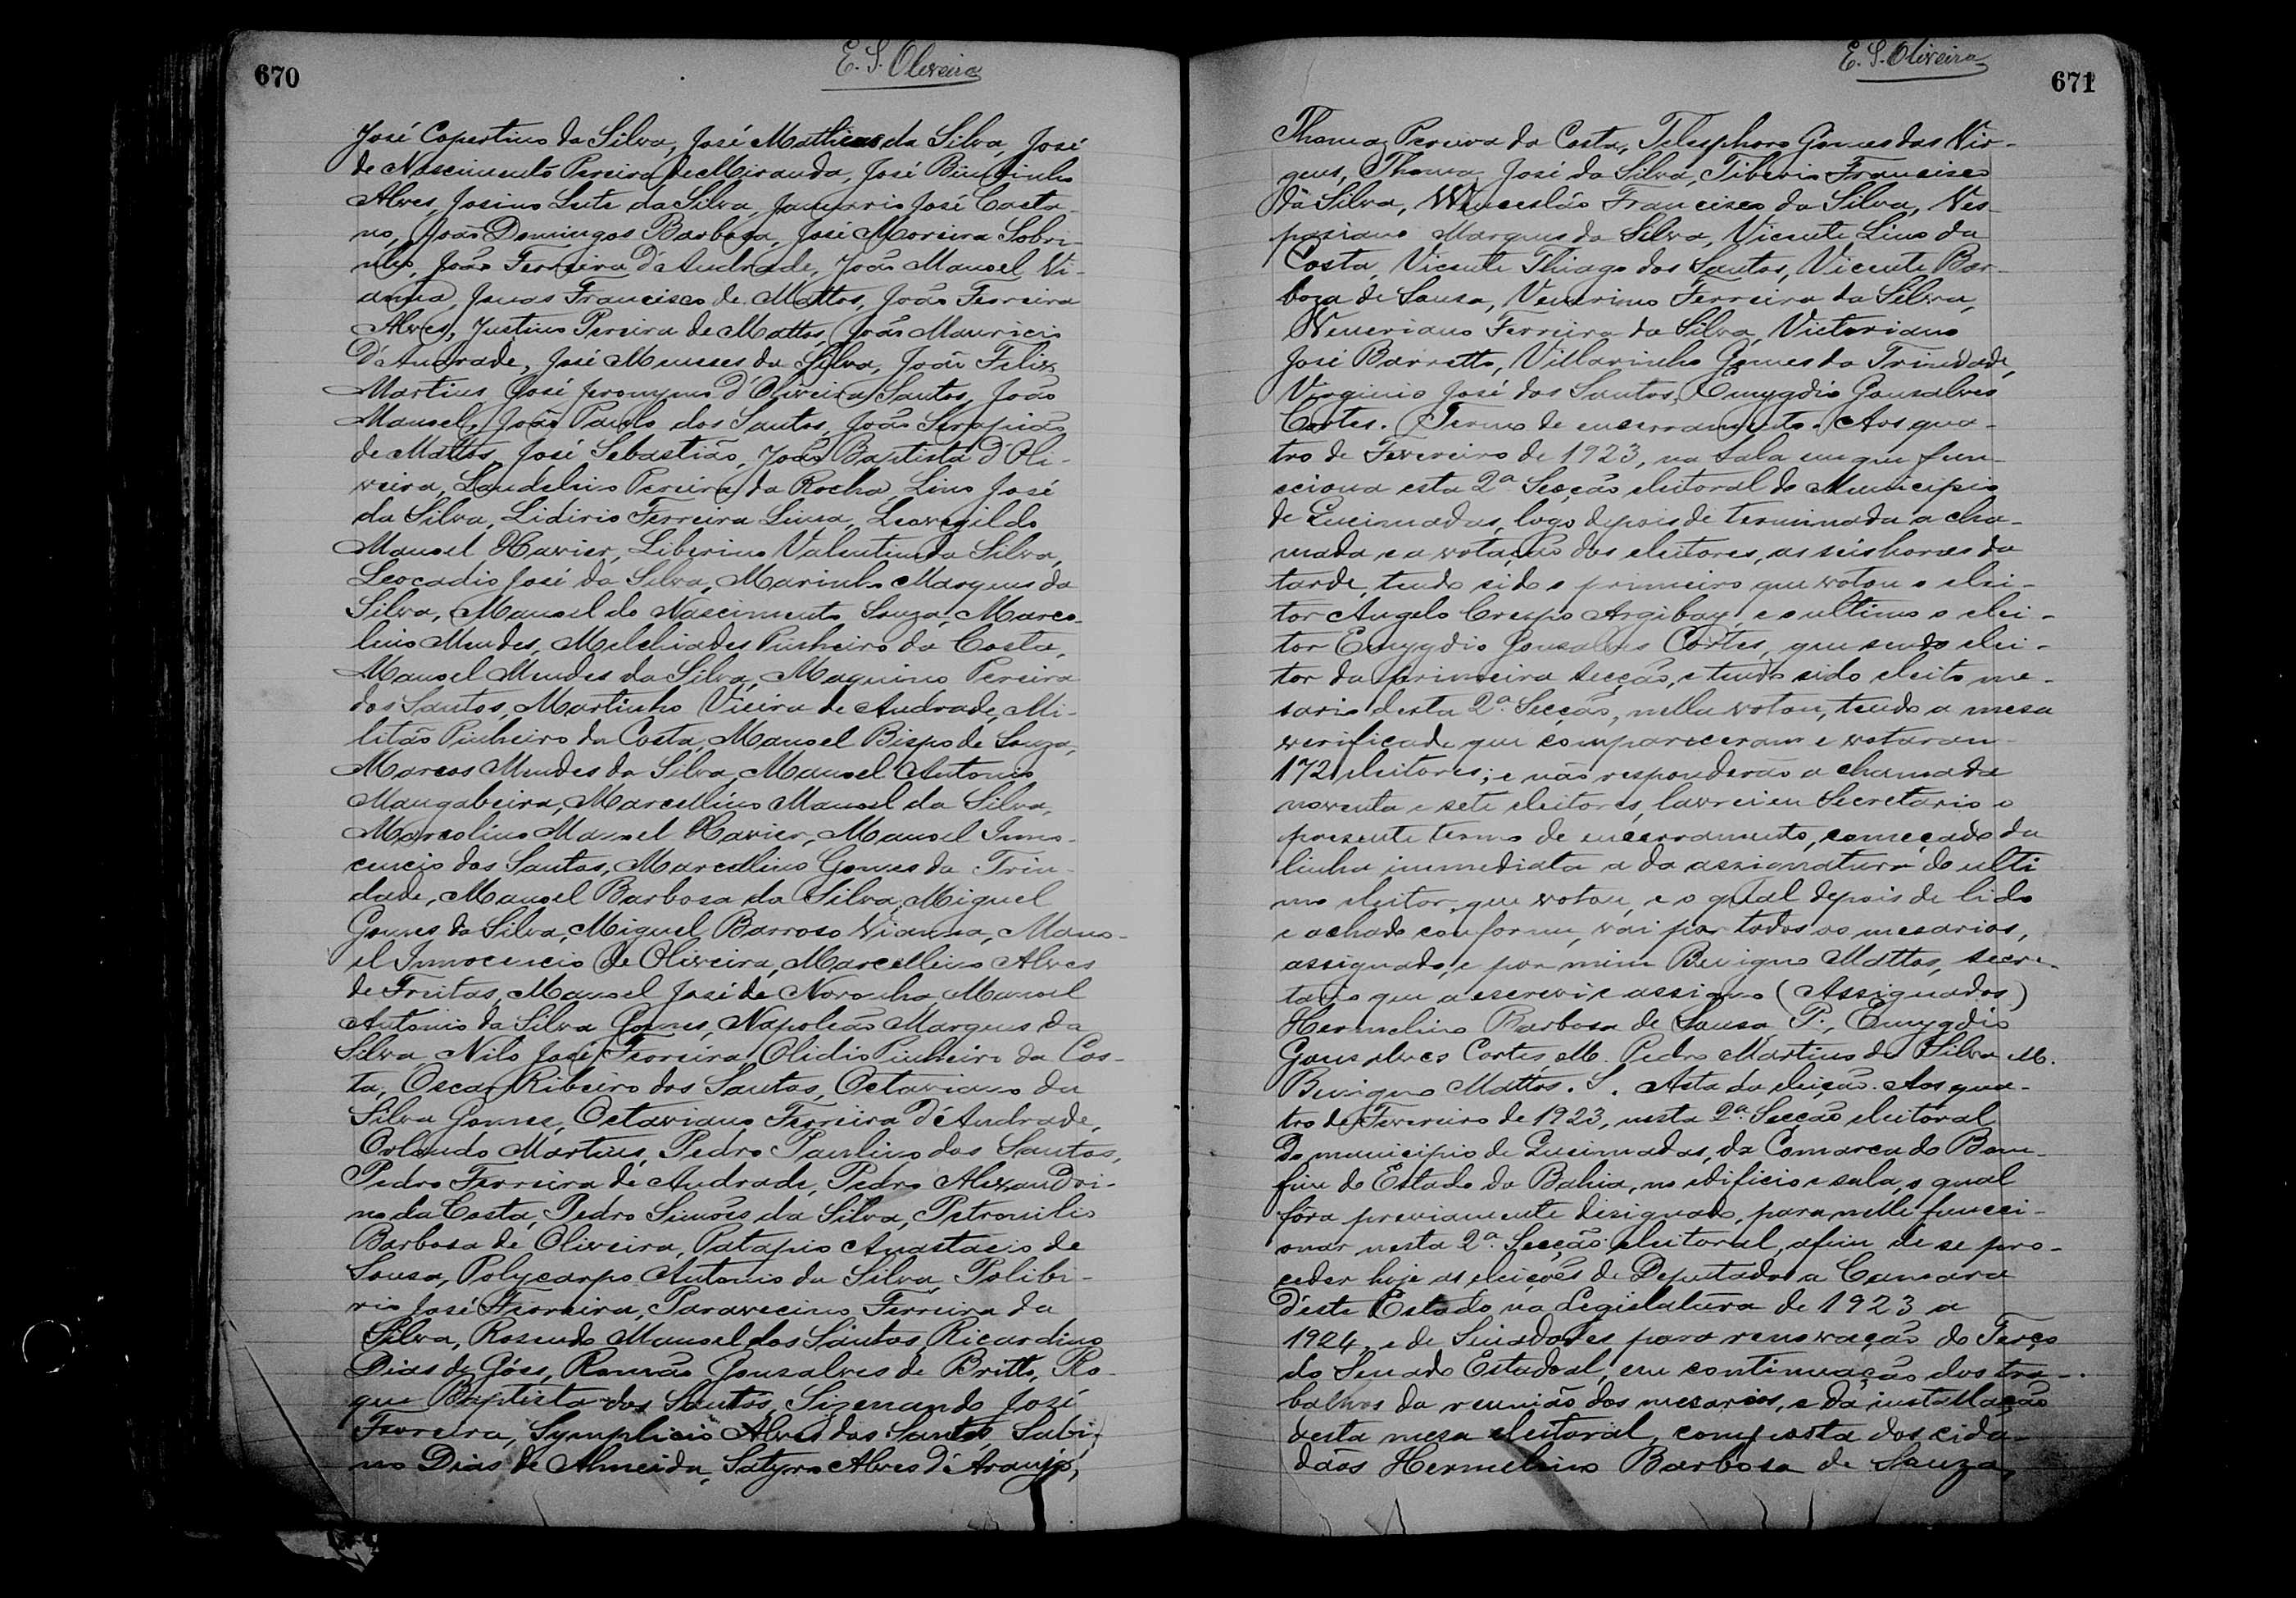 670
E. S. Oliveira
José Copertino da Silva, José Matheus da Silva, José
do Nascimento Pereira de Miranda, José
Alves, Josino Leite da Silva, Januario José Caeta-
no, João Domingos Barbosa, José Moreira Sobri-
nho, João Ferreira d'Andrade, João Manoel Vi-
anna, Jonas Francisco de Mattos, João Ferreira
Alves, Justino Pereira de Mattos, João Mauricio
d'Andrade, José Menezes da Silva, João Felix
Martins, José Jeronymo d'Oliveira Santos, João
Manoel, João Paulo dos Santos, João Serapião
de Mattos, José Sebastião, João Baptista d'Oli-
veira, Laudelino Pereira da Rocha, Lino José
da Silva, Lidirio Ferreira Lima, Leovegildo
Manoel Xavier, Liberino Valentim da Silva,
Leocadio José da Silva, Marinho Marques da
Silva, Manoel do Nascimento Souza, Marco-
lino Mendes, Melchiades Pinheiro da Costa,
Manoel Mendes da Silva, Maquino Pereira
dos Santos, Martinho Vieira de Andrade, Mi-
litão Pinheiro da Costa, Manoel Bispo de Souza,
Marcos Mendes da Silva, Manoel Antonio
Mangabeira, Marcellino Manoel da Silva,
Marcolino Manoel Xavier, Manoel Inno-
cencio dos Santos, Marcellino Gomes da Trin-
dade, Manoel Barbosa da Silva, Miguel
Gomes da Silva, Miguel Barroso Vianna, Mano-
el Innocencio de Oliveira, Marcellino Alves
de Freitas, Manoel José de Noronha, Manoel
Antonio da Silva Gomes, Napoleão Marques da
Silva, Nilo José Ferreira, Olidio Pinheiro da Cos-
ta, Oscar Ribeiro dos Santos, Octaviano da
Silva Gomes, Octaviano Ferreira d'Andrade,
Orlando Martins, Pedro Paulino dos Santos,
Pedro Ferreira de Andrade, Pedro Alexandri-
no da Costa, Pedro Simões da Silva, Petronilio
Barbosa de Oliveira, Patapio Anastacio de
Sousa, Polycarpo Antonio da Silva, Polibi-
rio José Ferreira, Paravecino Ferreira da
Silva, Rosendo Manoel dos Santos, Ricardino
Dias de Góes, Romão Gonsalves de Britto, Ro-
que Baptista dos Santos, Sizenando José
Ferreira, Symplicio Alves dos Santos, Sabi-
no Dias de Almeida, Satyro Alves d'Araujo,
E. S. Oliveira
671
Thomaz Pereira da Costa, Telesphoro Gomes das Vir-
gens, Thomaz José da Silva, Tiberio Francisco
da Silva, Wenceslão Francisco da Silva, Ves-
pasiano Marques da Silva, Vicente Lino da
Costa, Vicente Thiago dos Santos, Vicente Bar-
boza de Sousa, Venerino Ferreira da Silva,
Veneriano Ferreira da Silva, Victoriano
José Barretto, Villarinho Gomes da Trindade,
Virginio José dos Santos, Emygdio Gonsalves
Cortes. Termo de encerramento. Aos qua-
tro de Fevereiro de 1923, na sala em que fun-
cciona esta 2ª Secção eleitoral do Municipio
de Queimadas, logo depois de terminada a cha-
mada e a votação dos eleitores, as seis horas da
tarde, tendo sido o primeiro que votou o elei-
tor Angelo Crespo Argibay, e o ultimo o elei-
tor Emygdio Gonsalves Cortes, que sendo elei-
tor da primeira secção, e tendo sido eleito me-
sario desta 2ª Secção, nella votou, tendo a mesa
verificado que compareceram e votaram
172 eleitores; e não responderão a chamada
noventa e sete eleitores, lavrei eu Secretario o
presente termo de encerramento, começado da
linha immediata a da assignatura do ulti
mo eleitor que votou, e o qual depois de lido
e achado conforme, vai por todos os mesarios,
assignado, e por mim Benigno Mattos, secre-
tario que a escrevi e assigno (Assignados)
Hermelino Barbosa de Sousa P., Emygdio
Gonsalves Cortes, M. Pedro Martins da Silva M.
Benigno Mattos. S. Acta da eleição. Aos qua-
tro de Fevereiro de 1923, nesta 2ª Secção eleitoral
do municipio de Queimadas, da Comarca do Bom-
fim do Estado da Bahia, no edificio e sala, o qual
fôra previamente designado, para nelle funcci-
onar nesta 2ª Secção eleitoral, afim de se pro-
ceder hoje as eleições de Deputados a Camara
deste Estado na Legislatura de 1923 a
1924, e de Senadores para renovação do Terço
do Senado Estadoal, em continuação dos tra-
balhos da reunião dos mesarios, e da installação
desta mesa eleitoral, composta dos cida-
dãos Hermelino Barbosa de Souza,